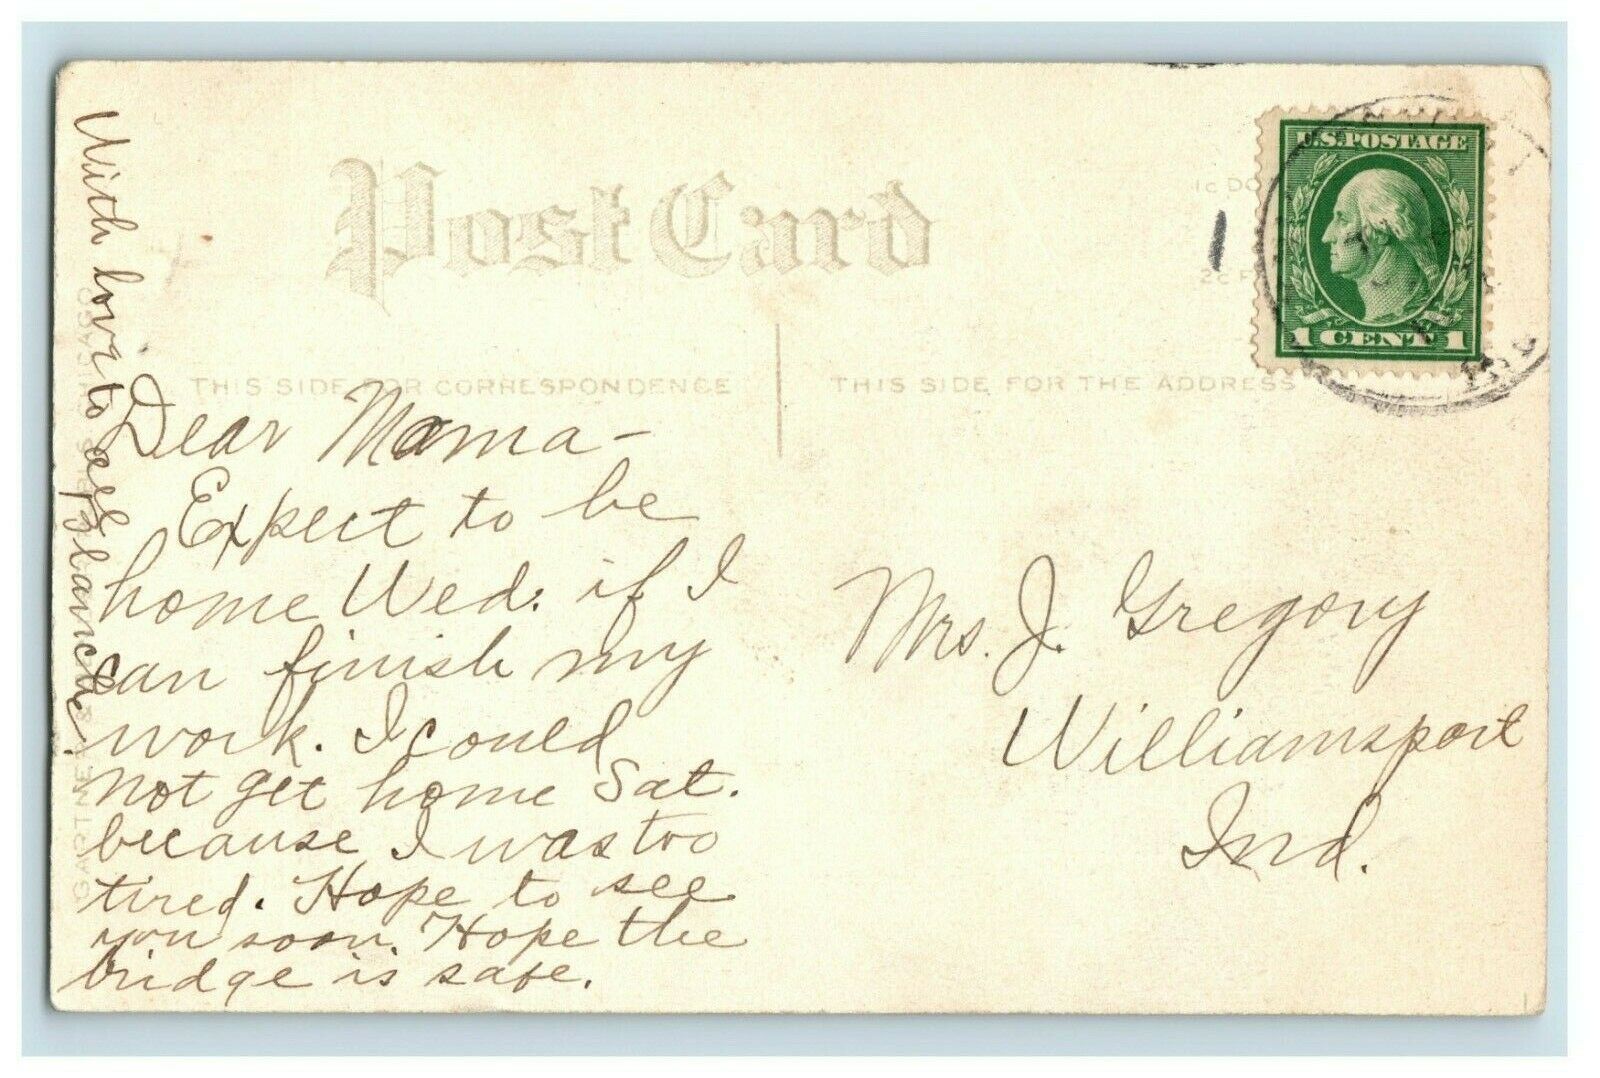 Post Card
THIS SIDE FOR CORRESPONDENCE
THIS SIDE FOR THE ADDRESS
1c DO
2c F
U.S. POSTAGE
1 CENT 1
Dear Mama -
Expect to be
home Wed. if I
can finish my
work. I could
not get home Sat.
because I was too
tired. Hope to see
you soon. Hope the
bridge is safe.
With love to all
Blanche.
Mrs. J. Gregory
Williamsport
Ind.